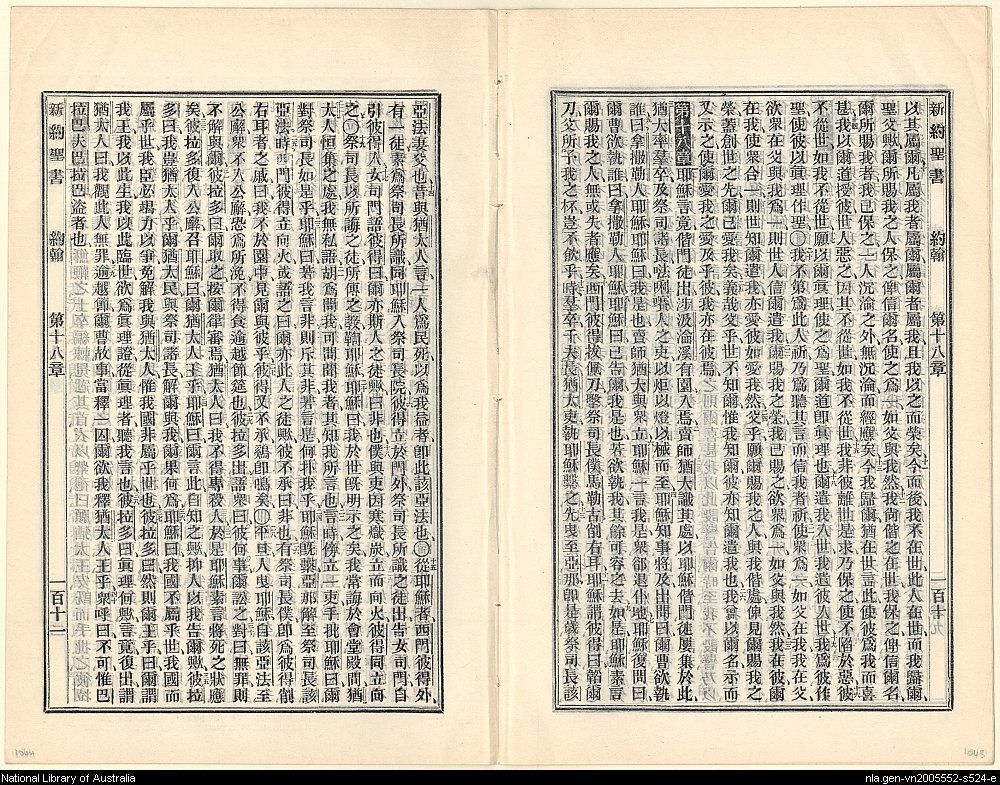 新約聖書 約翰 第十八章 一百十九
以其屬爾凡屬我者屬爾屬爾者屬我且我以之而榮矣今而後我不在世此人在世而我歸爾
聖父歟爾所賜我之人保之俾信爾名使之爲一如父與我然我尚偕之在世我保之俾信爾名
爾所賜我者我已保之一人沉淪之外無沉淪而經應矣今我歸爾猶在世言此使彼爲我而喜
甚我以爾道授彼世人惡之因其不從世如我不從世我非彼離世是求乃保之使不陷於惡彼
不從世如我不從世願以爾眞理使之爲聖爾道卽眞理也爾遣我入世我遣彼入世我爲彼作
聖使彼以眞理作聖〇我不第爲此人祈乃爲聽其言而信我者祈使衆爲一如父在我我在父
欲衆在父與我爲一則世人信爾遣我爾賜我之榮我已賜之欲衆爲一如父與我然我在彼爾
在我使衆合一則世知爾遣我亦愛彼如愛我然父乎願爾賜我之人與我偕處俾見爾賜我之
榮蓋創世之先爾已愛我矣義哉父乎世不知爾惟我知爾彼亦知爾遣我也我曾以爾名示而
又示之使爾愛我之愛及乎彼我亦在彼焉
第十八章耶穌言竟偕門徒出涉汲淪溪有園入焉賣師猶大識其處以耶穌偕門徒屢集於此
猶大率羣卒及祭司諸長㗂唎㘔人之吏以炬以燈以械而至耶穌知事將及出問曰爾曹欲執
誰曰拿撒勒人耶穌耶穌曰我是也賣師猶大與衆立耶穌一言我是衆卻退仆地耶穌復問曰
爾曹欲執誰曰拿撒勒人耶穌耶穌曰已告爾我是也若欲執我其餘可容之去如是耶穌素言
爾賜我之人無或失者應矣西門彼得拔佩刀擊祭司長僕馬勒古削右耳耶穌謂彼得曰韜爾
刀父所予我之杯豈不飲乎時羣卒千夫長猶大吏執耶穌繫之先曳至亞那卽是歲祭司長該
亞法妻父也昔與猶太人言一人爲民死以爲我益者卽此該亞法也〇從耶穌者西門彼得外
有一徒素爲祭司長所識同耶穌入祭司長院彼得立於門外祭司長所識之徒出告女司門自
引彼得入女司門語彼得曰爾亦斯人之徒歟曰非也僕與吏因寒熾炭立而向火彼得同立向
之〇祭司長以所誨之徒所傳之敎鞫耶穌耶穌曰我於世旣明示之矣我常誨於會堂殿間猶
太人恒集之處我無私語胡爲問我可問聞我者其知我所言也言時傍立一吏手批耶穌曰爾
對祭司長如是乎耶穌曰若我言非則斥其非若言是何扑我乎耶穌旣繫亞那解至祭司長該
亞法時西門彼得立向火或語之曰爾亦此人之徒歟彼不承曰非也有祭司長僕卽爲彼得削
右耳者之戚曰我不於園中見爾與彼乎彼得又不承鷄卽鳴矣〇平旦人曳耶穌自該亞法至
公廨衆不入公廨恐爲所浼不得食逾越節筵也彼拉多出語衆曰彼何事爾訟之對曰無罪則
不解與爾彼拉多曰爾取之按爾律審焉猶太人曰我不得專殺人於是耶穌素言將死之狀應
矣彼拉多復入公廨召耶穌曰爾猶太人王乎耶穌曰爾言此自知之歟抑人以我告爾歟彼拉
多曰我豈猶太人乎爾猶太民與祭司諸長解爾與我爾果何爲耶穌曰我國不屬乎世我國而
屬乎世我臣必竭力以爭免解我與猶太人惟我國非屬乎世也彼拉多曰然則爾王乎曰爾謂
我王我以此生我以此臨世欲爲眞理證從眞理者聽我言也彼拉多曰眞理何歟言竟復出謂
猶太人曰我觀此人無罪逾越節爾曹故事當釋一囚爾欲我釋猶太人王乎衆呼曰不可惟巴
拉巴夫巴拉巴盜者也
新約聖書 約翰 第十八章 一百十二
1064
1043
National Library of Australia
nla.gen-vn2005552-s524-e